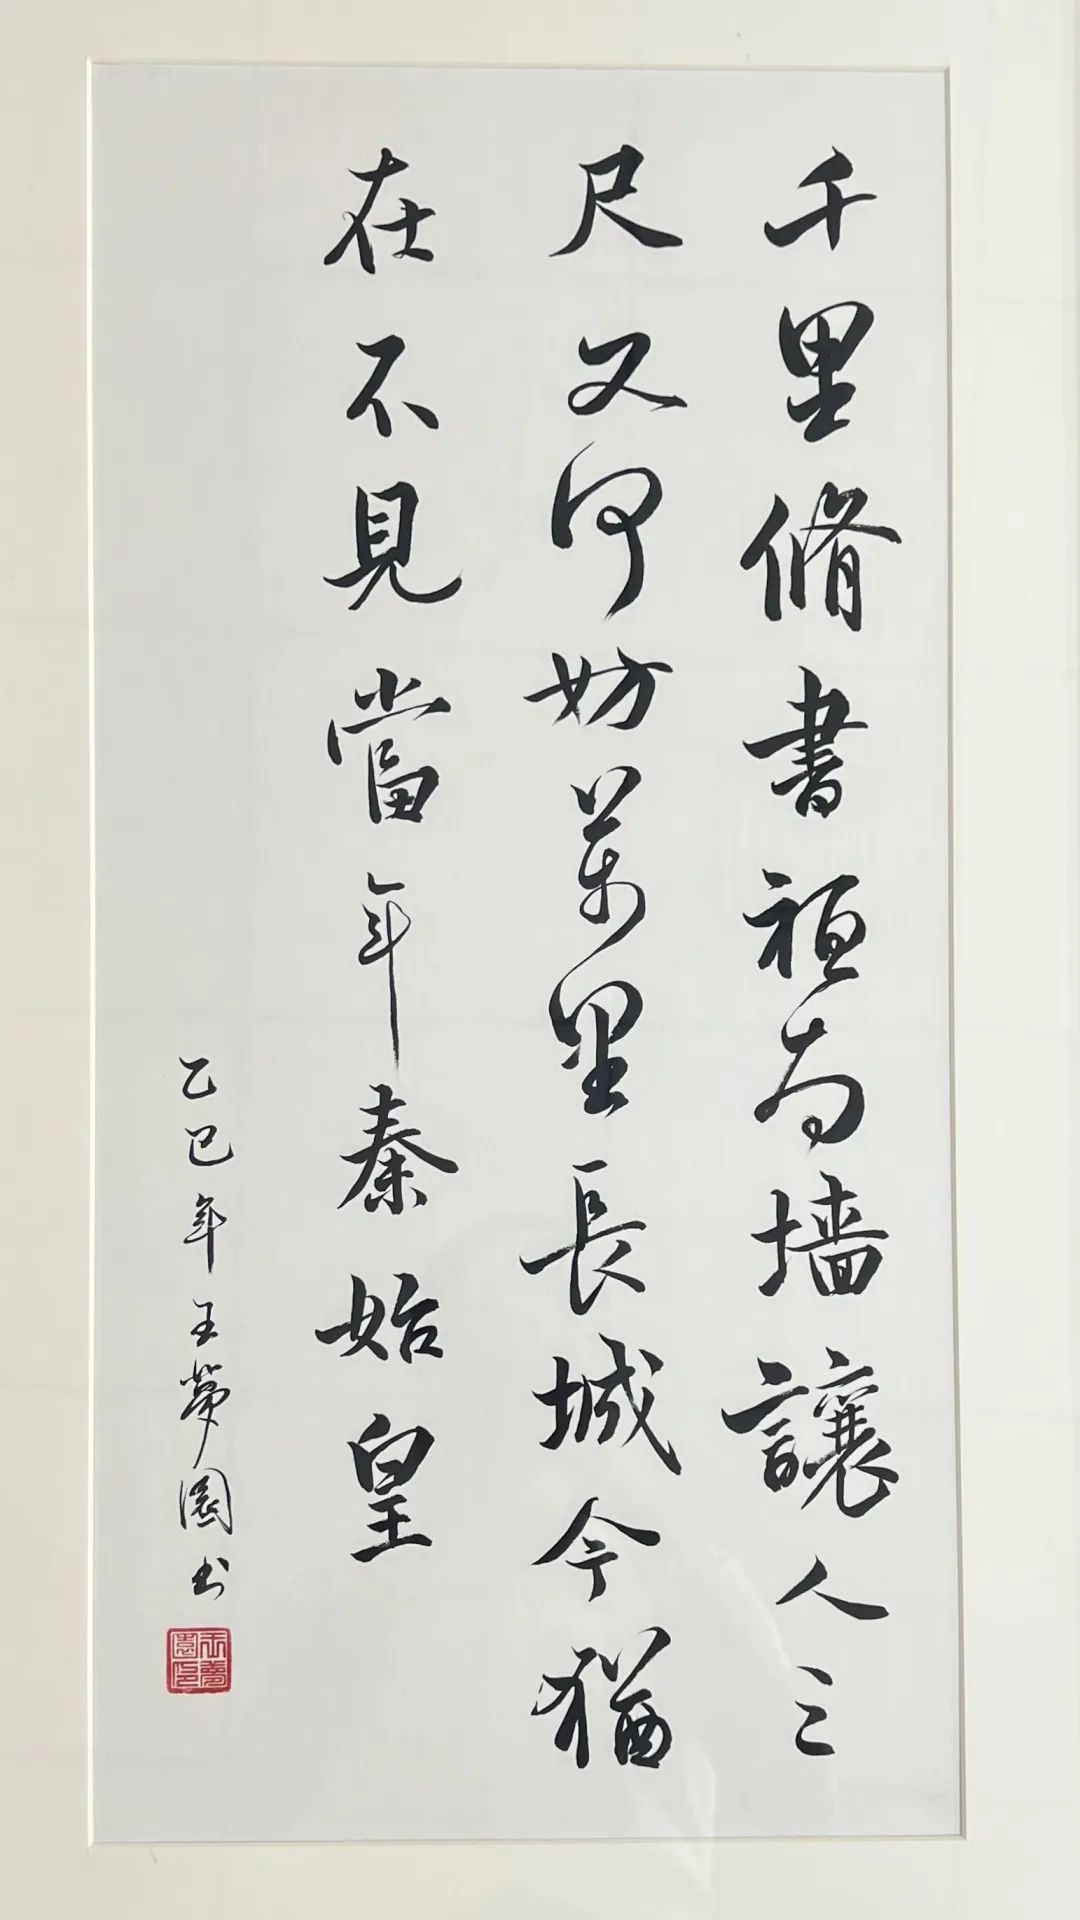 千里脩書祗為墙讓人三
尺又何妨萬里長城今猶
在不見當年秦始皇
乙巳年王夢園书
王夢園印